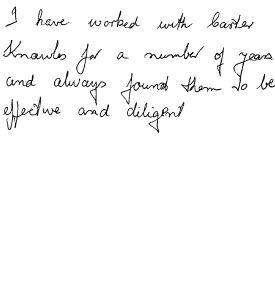 I have worked with Carter
Knowles for a number of years
and always found them to be
effective and diligent